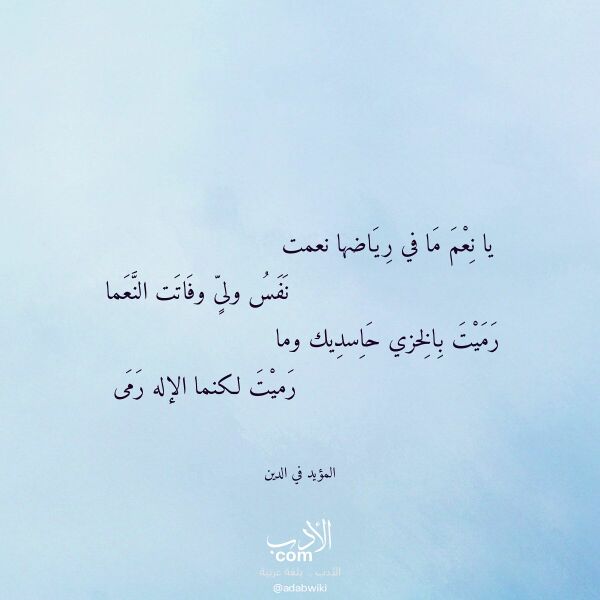 يا نِعْمَ مَا في رِيَاضها نعمت
نَفَسُ وليٍّ وفَاتَت النَّعَما
رَمَيْتَ بِالخِزي حَاسدِيك وما
رَميْتَ لكنما الإله رَمَى
المؤيد في الدين
الأدب
com
الأدب .. بلغة عربية
@adabwiki